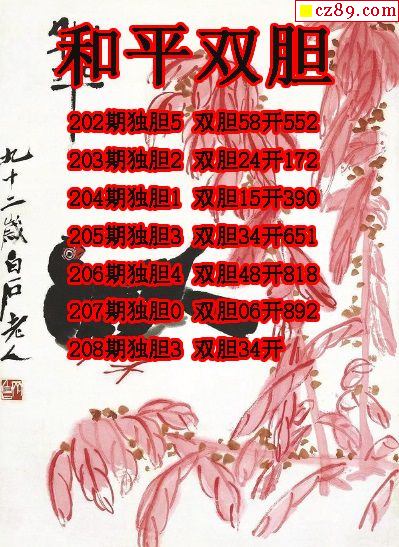 cz89.com
和平
和平双胆
202期独胆5 双胆58开552
203期独胆2 双胆24开172
204期独胆1 双胆15开390
205期独胆3 双胆34开651
206期独胆4 双胆48开818
207期独胆0 双胆06开892
208期独胆3 双胆34开
九十二岁白石老人